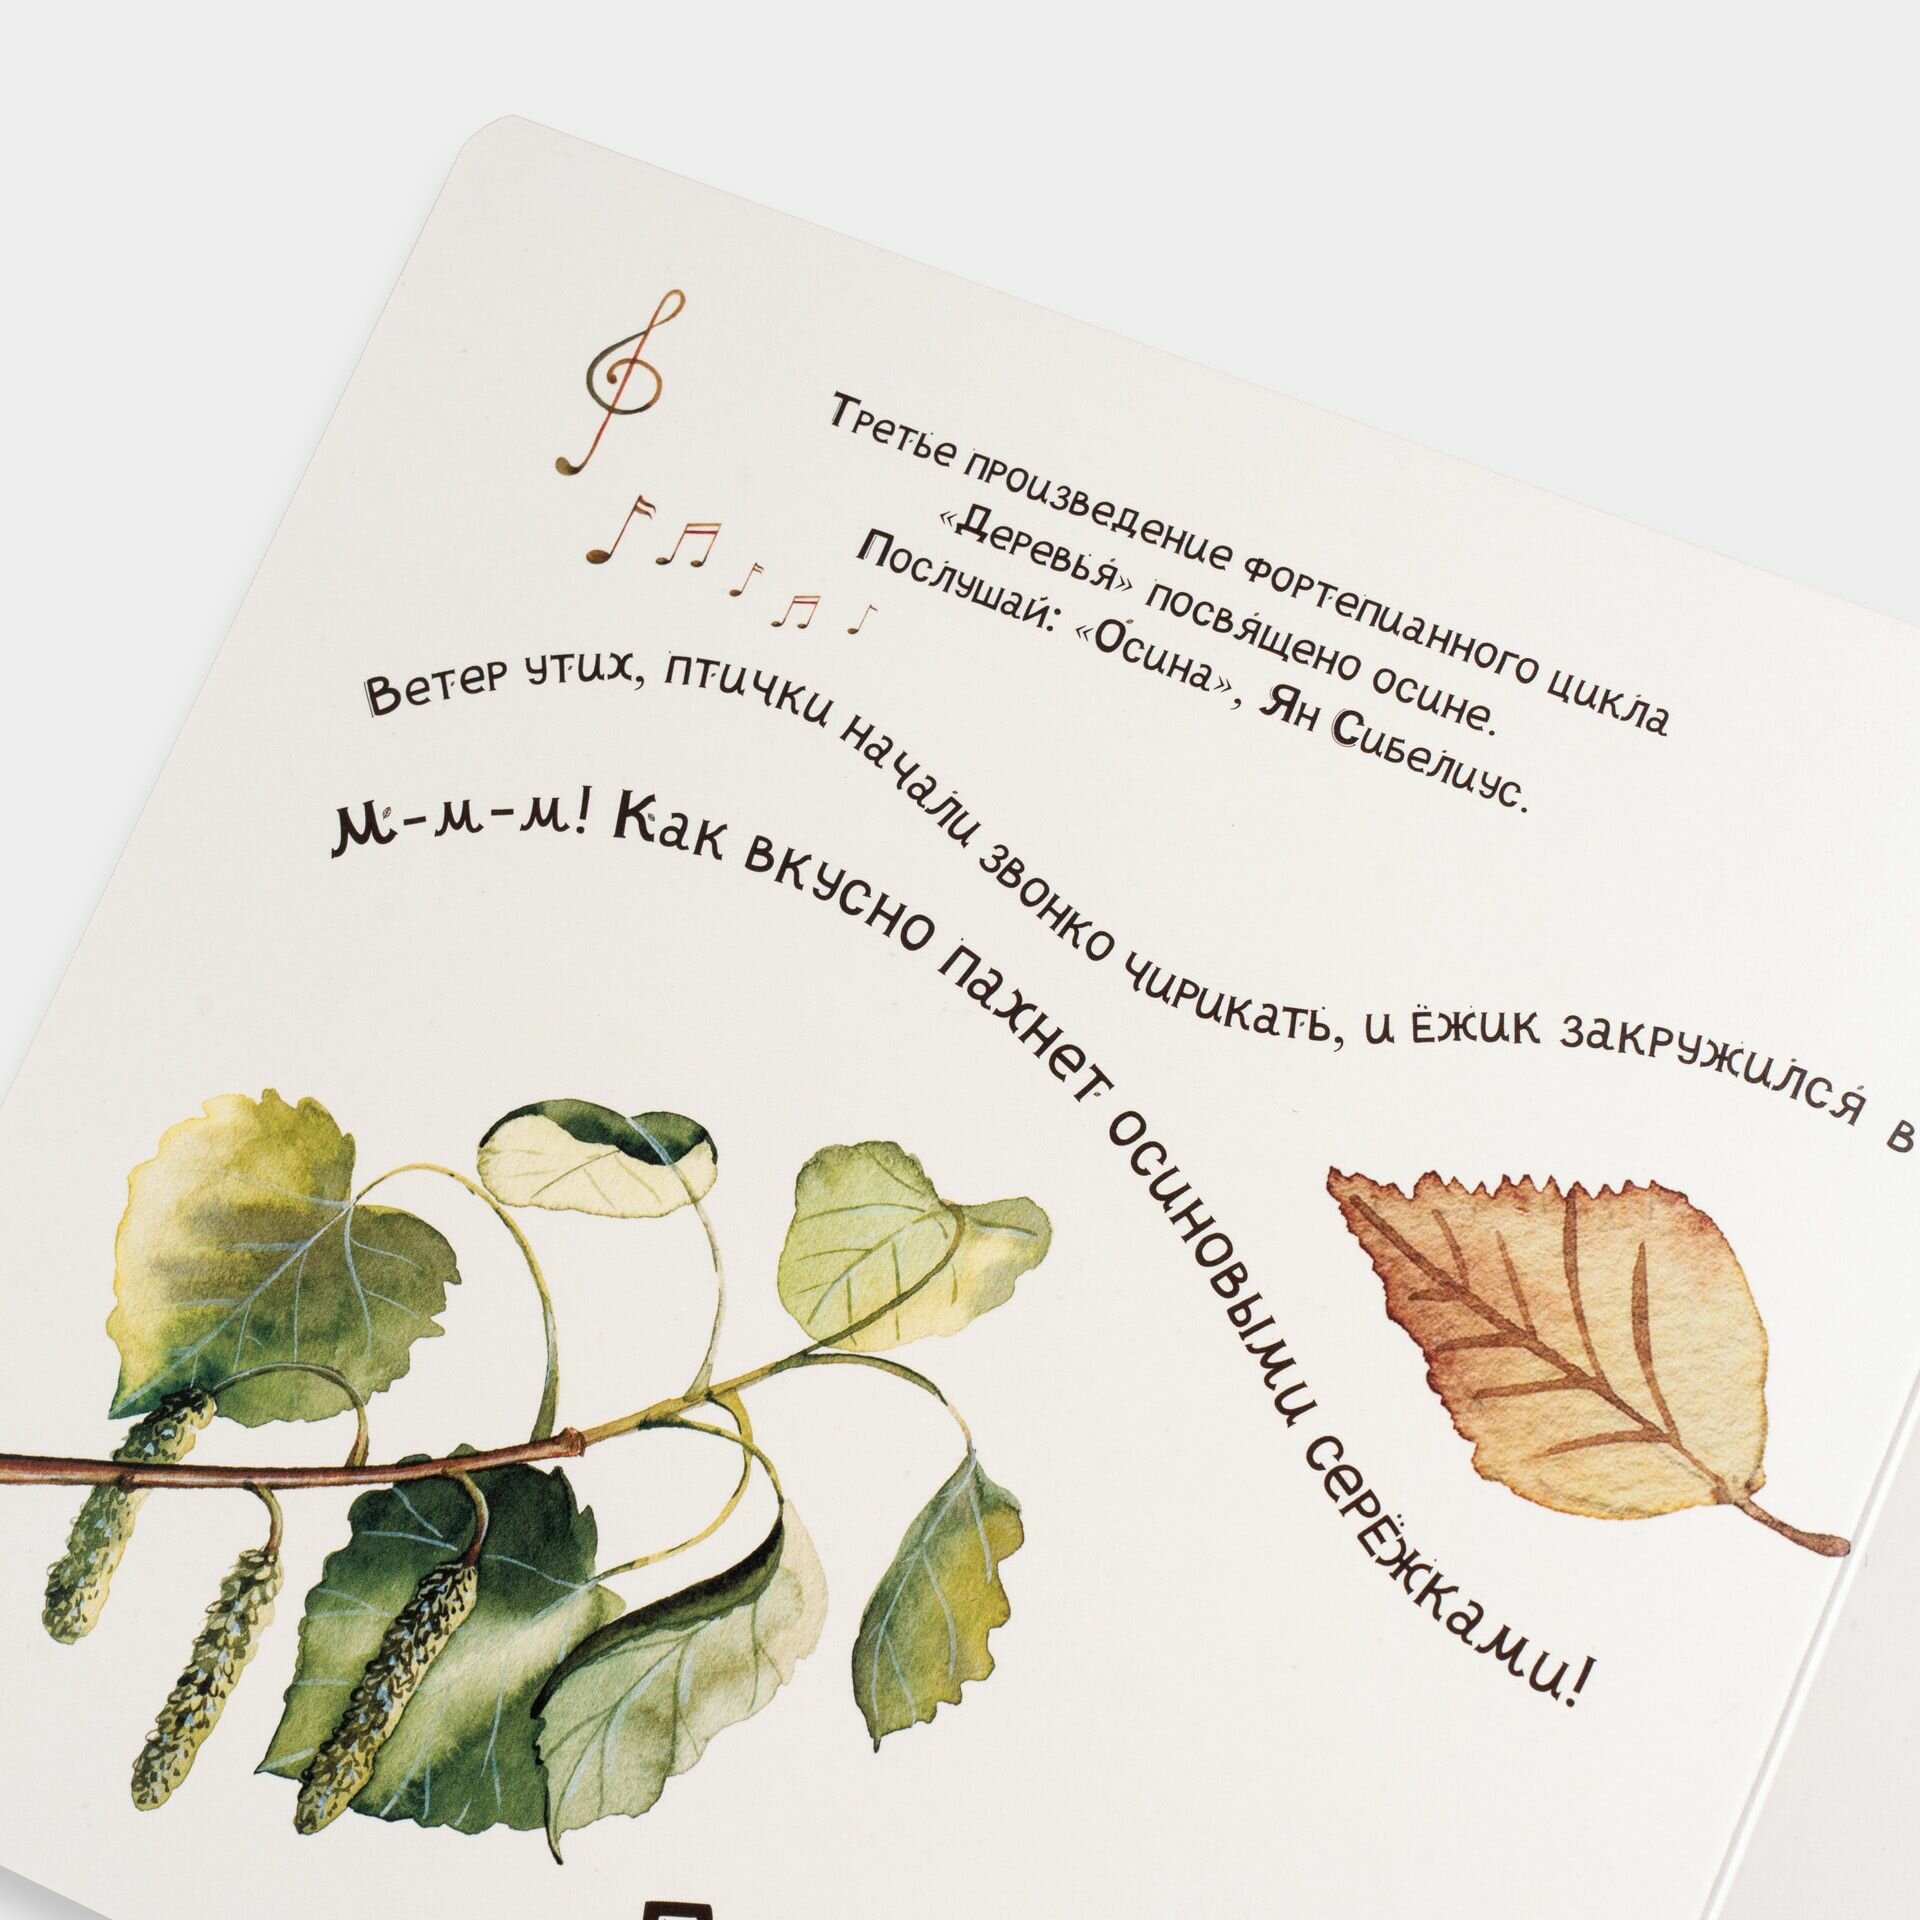 Третье произведение фортепианного цикла
«Деревья» посвящено осине.
Послушай: «Осина», Ян Сибелиус.
Ветер утих, птички начали звонко чирикать, и ёжик закружился в
М-м-м! Как вкусно пахнет осиновыми серёжками!